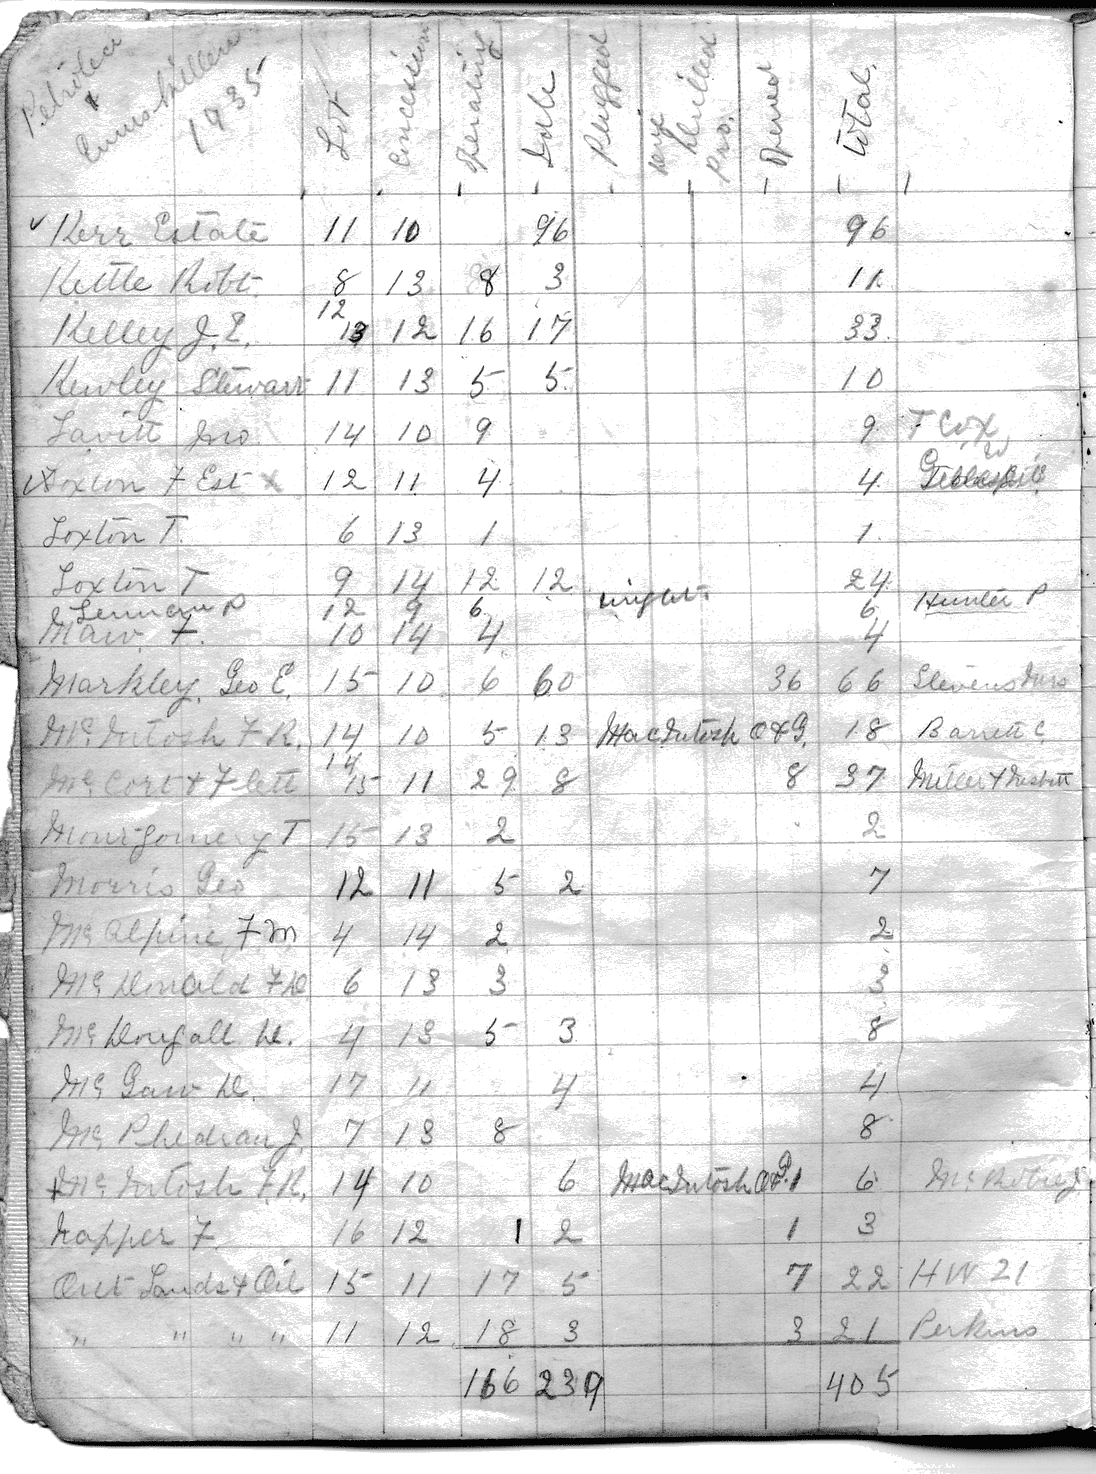 Petrolea & Enniskillen 1935
Lot Concession Operating Idle Plugged Drilled Pro. Total
Kerr Estate 11 10 96 96
Kettle Robt. 8 13 8 3 11
12
Kelley J. E. 13 12 16 17 33
Kewley Stewart 11 13 5 5 10
Lavitt Geo 14 10 9 9 T Cox
Loxton F Est X 12 11 4 4 Gillespie
Loxton T. 6 13 1 1
Loxton T 9 14 12 12 24
P 12 9 6 6 Hunter P
Maw. F. 10 14 4 4
Markley, Geo E. 15 10 6 60 36 66 Stevens Mrs
Mc Intosh F R. 14 10 5 13 MacIntosh O & G. 18 Barrett C
14
Mc Cort & Flett 15 11 29 8 8 37 Miller & Nesbitt
Montgomery T 15 13 2 2
Morris Geo 12 11 5 2 7
Mc Alpine F M 4 14 2 2
Mc Donald F D 6 13 3 3
Mc Dougall D. 4 13 5 3 8
Mc Gaw D. 17 11 4 4
Mc Phedran J. 7 13 8 8
Mc Intosh F R. 14 10 6 MacIntosh O&G. 1 6 Mc Robie J
Napper F. 16 12 1 2 1 3
Ont Lands & Oil 15 11 17 5 7 22 H W 21
" " " " 11 12 18 3 3 21 Perkins
166 239 405